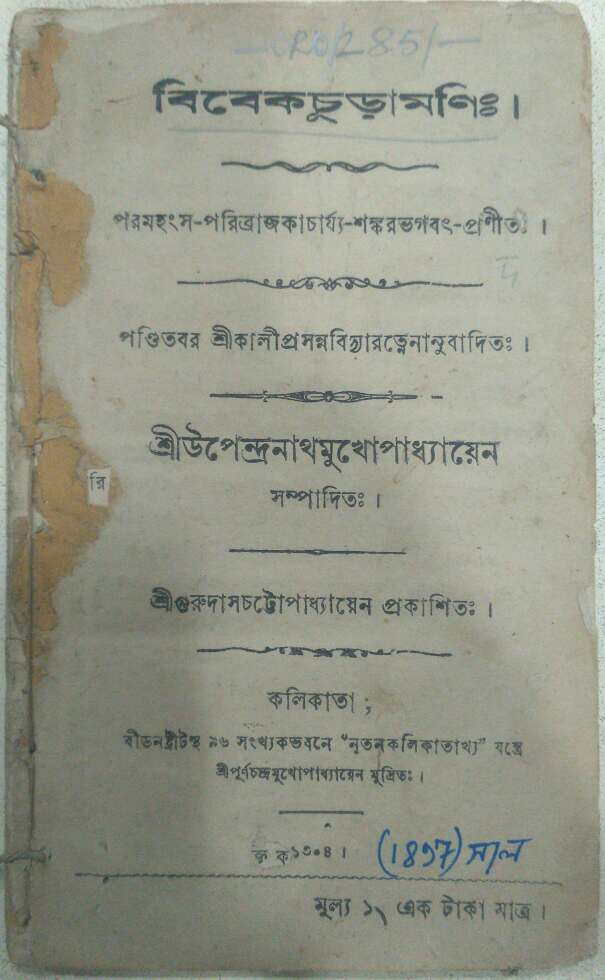 বিবেকচুড়ামণিঃ।
পরমহংস-পরিব্রাজকাচার্য্য-শঙ্করভগবৎ-প্রণীতঃ।
পণ্ডিতবর শ্রীকালীপ্রসন্নবিদ্যারত্নেনানুবাদিতঃ।
শ্রীউপেন্দ্রনাথমুখোপাধ্যায়েন
রি
সম্পাদিতঃ।
শ্রীগুরুদাসচট্টোপাধ্যায়েন প্রকাশিতঃ।
কলিকাতা;
বীডনষ্ট্রীটস্থ ৯৬ সংখ্যকভবনে "নূতনকলিকাতাখ্য" যন্ত্রে
শ্রীপূর্ণচন্দ্রমুখোপাধ্যায়েন মুদ্রিতঃ।
১৩০৪। (1897) সাল
মূল্য ১৲ এক টাকা মাত্র।